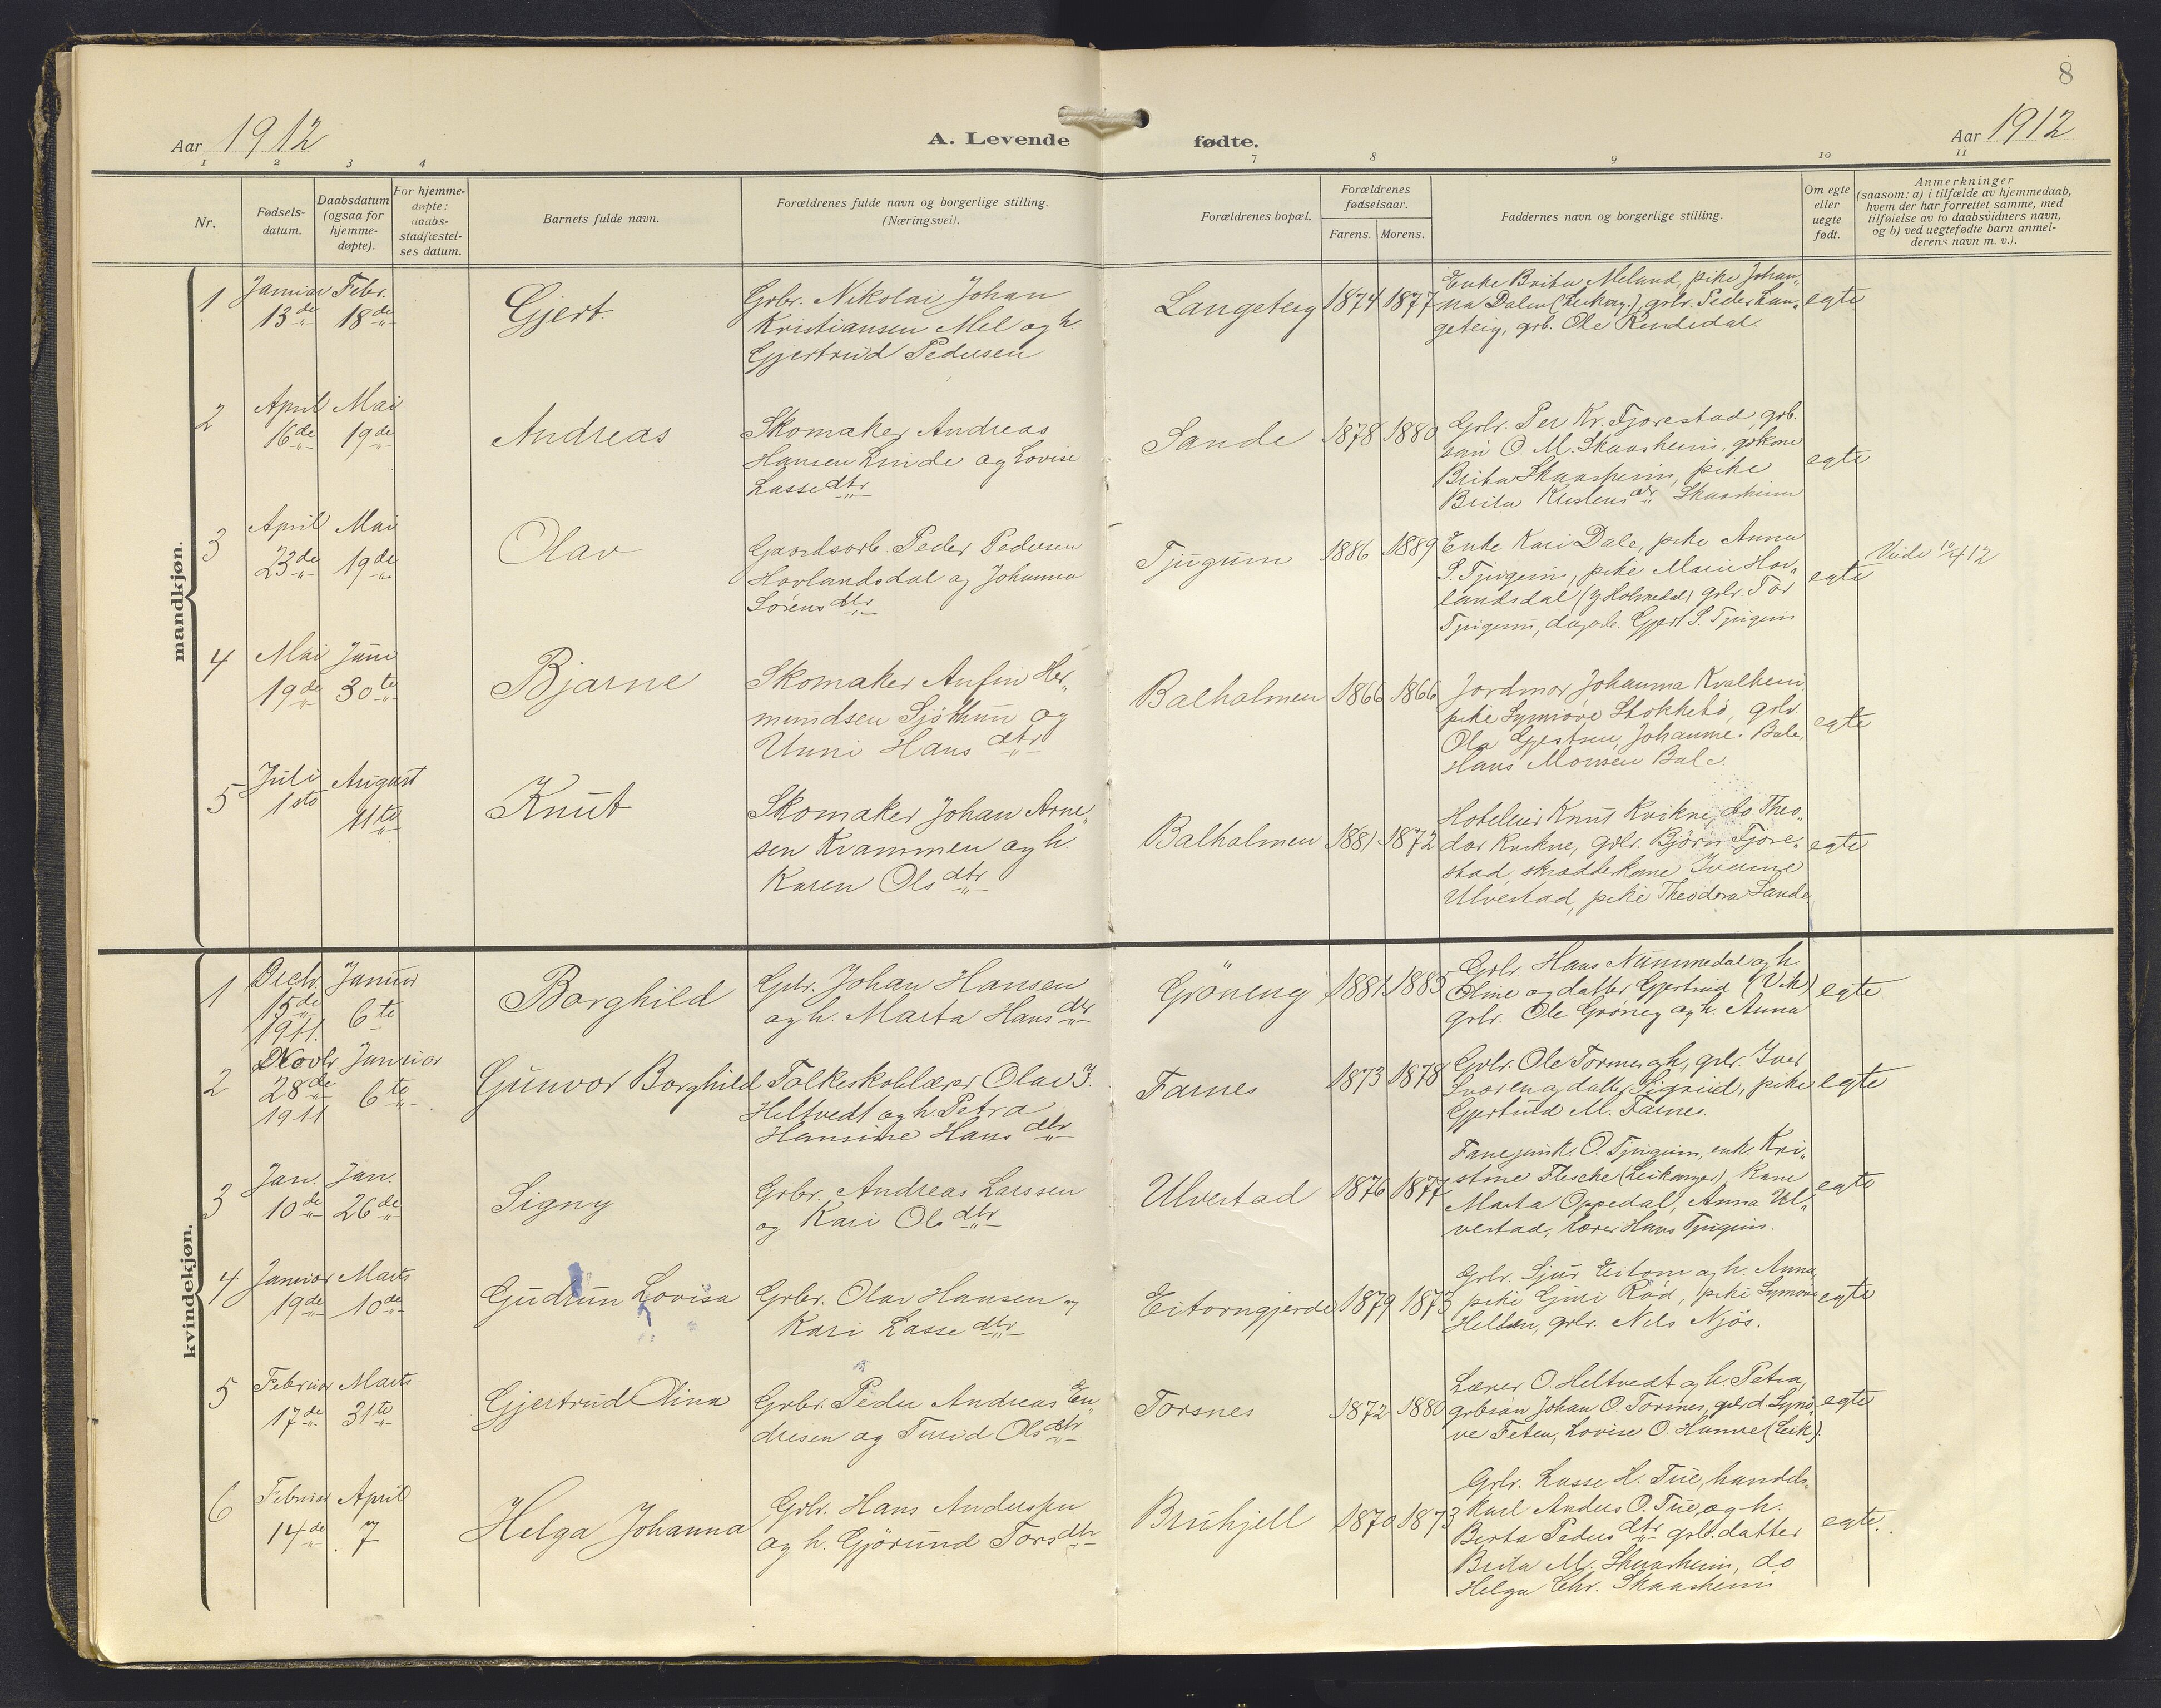 8
Aar 1912
A. Levende fødte.
Aar 1912
1 2 3 4 7 8 9 10 11
Nr.
Fødsels-
datum.
Daabsdatum
(ogsaa for
hjemme-
døpte).
For hjemme-
døpte:
daabs-
stadfæstel-
ses datum.
Barnets fulde navn.
Forældrenes fulde navn og borgerlige stilling.
(Næringsvei).
Forældrenes bopæl.
Forældrenes
fødselsaar.
Farens. Morens.
Faddernes navn og borgerlige stilling.
Om egte
eller
uegte
født.
Anmerkninger
(saasom: a) i tilfælde av hjemmedaab,
hvem der har forrettet samme, med
tilføielse av to daabsvidners navn,
og b) ved uegtefødte barn anmel-
derens navn m. v.).
mandkjøn.
1
Januar
13de
Febr.
18de
Gjert
Grbr. Nikolai Johan
Kristiansen Mel og h.
Gjertrud Pedersen
Langeteig
1874
1877
Enke Brita Meland, pike Johan-
na Dalen (Leikang.) grbr. Peder Lan-
geteig, grb. Ole Rendedal.
egte
2
April
16de
Mai
19de
Andreas
Skomaker Andreas
Hansen Linde og Lovise
Lassedtr
Sande
1878
1880
Grbr. Per Kr. Tjorestad, grb.
søn O. M. Skaasheim, grkone
Brita Skaasheim, pike
Brita Kristensdr Skaasheim
egte
3
April
23de
Mai
19de
Olav
Gaardsarb. Peder Pedersen
Hovlandsdal og Johanna
Sørensdtr
Tjugum
1886
1889
Enke Kari Dale, pike Anna
S. Tjugum, pike Marie Hov-
landsdal (Y Holmedal) grbr. Tor
Tjugum, Gjert S. Tjugum
egte
Viede 10/4 12
4
Mai
19de
Juni
30te
Bjarne
Skomaker Anfin Her-
mundsen Sjøthun og
Unni Hansdtr
Balholmen
1866
1866
Jordmor Johanna Kvalheim
pike Synnøve Stokkebø, grbr.
Ola Gjertsen, Johanne. Bale,
Hans Monsen Bale.
egte
5
Juli
1ste
August
11te
Knut
Skomaker Johan Arne-
sen Kvammen og h.
Karen Olsdtr
Balholmen
1881
1872
Hoteleier Knut Kvikne, do Theo-
dor Kvikne, grbr. Bjørn Tjore-
stad, skrædderkone Iverine
Ulvestad, pike Theodora Sande
egte
kvindekjøn.
1
Decbr.
15de
1911.
Januar
6te
Borghild
Gbr. Johan Hansen
og h. Marta Hansdtr
Grøneng
1881
1885
Grbr. Hans Nummedal og h.
Oline og datter Gjertrud (Vik)
grbr. Ole Grøneng og h. Anna
egte
2
Novbr.
28de
1911
Januar
6te
Gunvor Borghild
Folkeskolelærer Olav J.
Heltvedt og h. Petra
Hansine Hansdtr
Farnes
1873
1878
Grbr. Ole Torsnes og h., grbr. Iver
Sværen og datter Sigrid, pike
Gjertrud M. Farnes.
egte
3
Jan.
10de
Jan.
26de
Signy
Grbr. Andreas Larssen
og Kari Olsdtr
Ulvestad
1876
1877
Fanejunk. O. Tjugum, enke Kri-
stine Flesche (Leikanger), kone
Marta Oppedal, Anna Ul-
vestad, lærer Hans Tjugum.
egte
4
Januar
19de
Marts
10de
Gudrun Lovisa
Grbr. Olav Hansen og
Kari Lassedtr
Eitorngjerde
1879
1873
Grbr. Sjur Eitorn og h. Anna,
pike Guri Rød, pike Synnøve
Hellen, grbr. Nils Njøs.
egte
5
Februar
17de
Marts
31te
Gjertrud Olina
Grbr. Peder Andreas En-
dresen og Turid Olsdtr
Torsnes
1872
1880
Lærer O. Heltvedt og h. Petra,
grbsøn Johan O. Torsnes, grbrd. Synø-
ve Feten, Lovise O. Hamre (Leik.)
egte
6
Februar
14de
April
7
Helga Johanna
Grbr. Hans Anderssen
og h. Gjørund Torsdtr
Bruhjell
1870
1873
Grbr. Lasse H. Tue, handels-
karl Anders O. Tue og h.
Berta Pedersdtr grb.datter
Brita M. Skaasheim, do
Helga Chr. Skaasheim
egte.